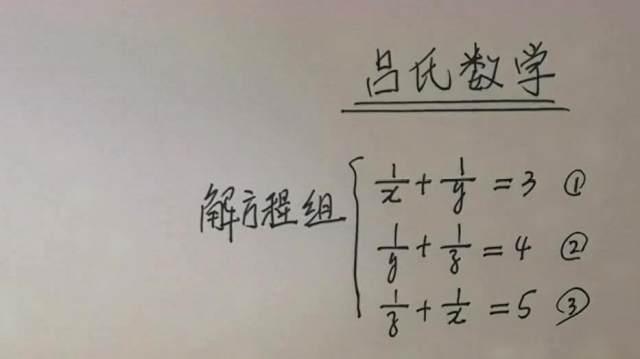 吕氏数学
解方程组
1/x + 1/y = 3 ①
1/y + 1/z = 4 ②
1/z + 1/x = 5 ③